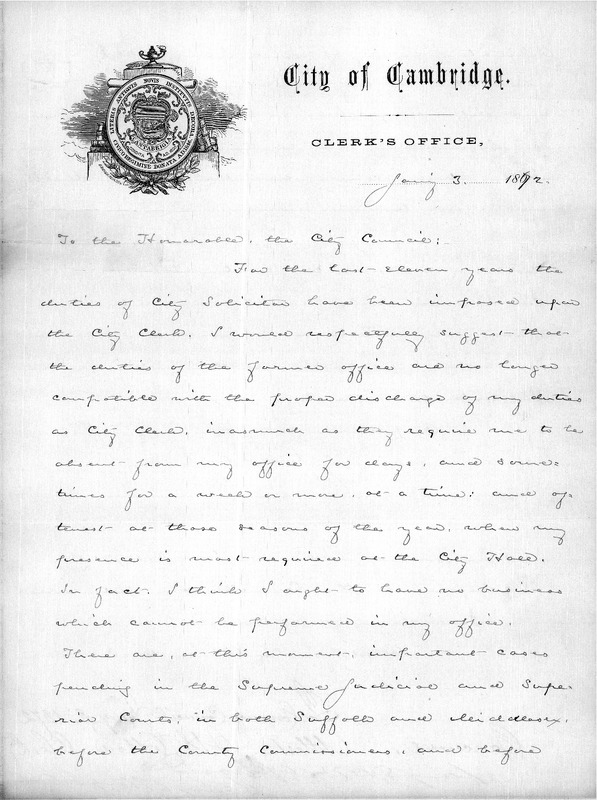 City of Cambridge.
CLERK'S OFFICE,
Jan'y 3. 1872.
To the Honorable, the City Council:
For the last eleven years the
duties of City Solicitor have been imposed upon
the City Clerk. I would respectfully suggest that
the duties of the former office are no longer
compatible with the proper discharge of my duties
as City Clerk, inasmuch as they require me to be
absent from my office for days, and some=
times for a week or more, at a time; and of=
tenest at those seasons of the year, when my
presence is most required at the City Hall.
In fact, I think I ought to have no business
which cannot be performed in my office.
There are, at this moment, important cases
pending in the Supreme Judicial and Supe=
rior Courts, in both Suffolk and Middlesex,
before the County Commissioners, and before